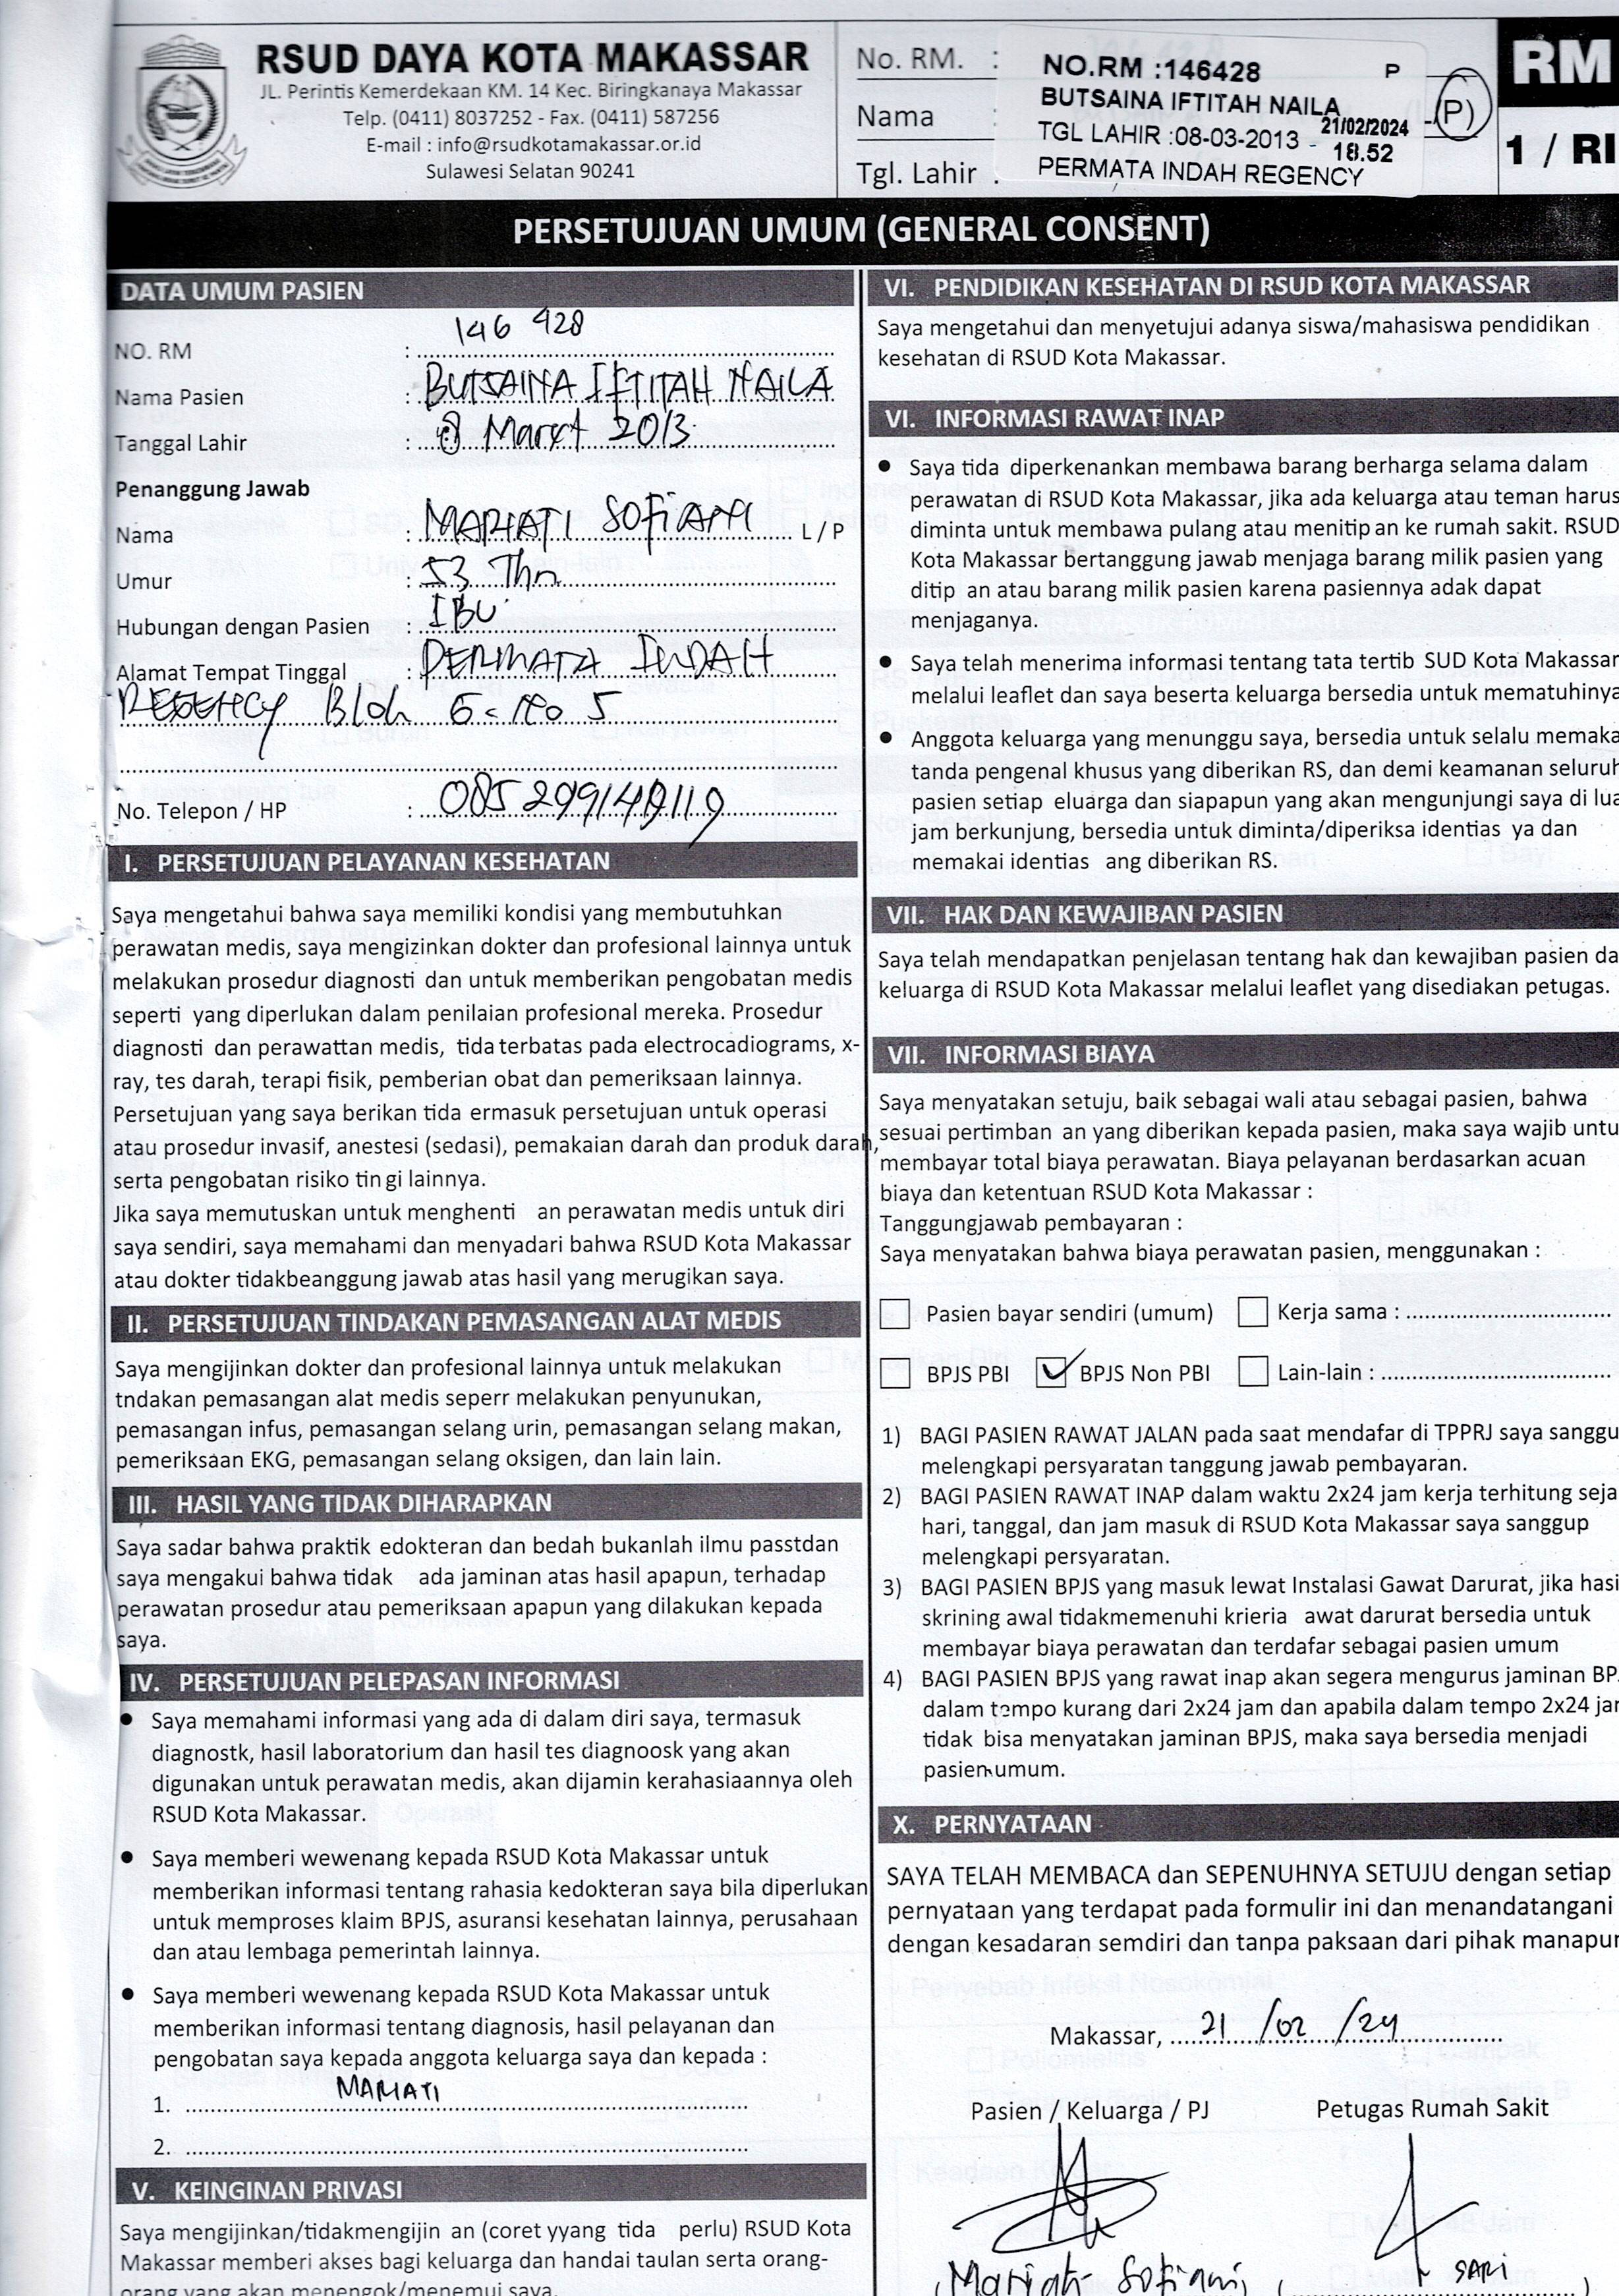 RSUD DAYA KOTA MAKASSAR
JL. Perintis Kemerdekaan KM. 14 Kec. Biringkanaya Makassar
Telp. (0411) 8037252 - Fax. (0411) 587256
E-mail : info@rsudkotamakassar.or.id
Sulawesi Selatan 90241
No. RM. :
Nama :
Tgl. Lahir :
NO.RM :146428 P
BUTSAINA IFTITAH NAILA
TGL LAHIR :08-03-2013 - 21/02/2024
18.52
PERMATA INDAH REGENCY
L/(P)
RM
1 / RI
PERSETUJUAN UMUM (GENERAL CONSENT)
DATA UMUM PASIEN
NO. RM : 146 428
Nama Pasien : BUTSAINA IFTITAH NAILA
Tanggal Lahir : 8 Maret 2013
Penanggung Jawab
Nama : MARIATI SOFIANI L / P
Umur : 53 Thn
Hubungan dengan Pasien : IBU
Alamat Tempat Tinggal : PERMATA INDAH
REGENCY Blok No 5
No. Telepon / HP :
I. PERSETUJUAN PELAYANAN KESEHATAN
Saya mengetahui bahwa saya memiliki kondisi yang membutuhkan
perawatan medis, saya mengizinkan dokter dan profesional lainnya untuk
melakukan prosedur diagnosti dan untuk memberikan pengobatan medis
seperti yang diperlukan dalam penilaian profesional mereka. Prosedur
diagnosti dan perawattan medis, tida terbatas pada electrocadiograms, x-
ray, tes darah, terapi fisik, pemberian obat dan pemeriksaan lainnya.
Persetujuan yang saya berikan tida ermasuk persetujuan untuk operasi
atau prosedur invasif, anestesi (sedasi), pemakaian darah dan produk darah,
serta pengobatan risiko tin gi lainnya.
Jika saya memutuskan untuk menghenti an perawatan medis untuk diri
saya sendiri, saya memahami dan menyadari bahwa RSUD Kota Makassar
atau dokter tidakbeanggung jawab atas hasil yang merugikan saya.
II. PERSETUJUAN TINDAKAN PEMASANGAN ALAT MEDIS
Saya mengijinkan dokter dan profesional lainnya untuk melakukan
tndakan pemasangan alat medis seperr melakukan penyunukan,
pemasangan infus, pemasangan selang urin, pemasangan selang makan,
pemeriksaan EKG, pemasangan selang oksigen, dan lain lain.
III. HASIL YANG TIDAK DIHARAPKAN
Saya sadar bahwa praktik edokteran dan bedah bukanlah ilmu passtdan
saya mengakui bahwa tidak ada jaminan atas hasil apapun, terhadap
perawatan prosedur atau pemeriksaan apapun yang dilakukan kepada
saya.
IV. PERSETUJUAN PELEPASAN INFORMASI
● Saya memahami informasi yang ada di dalam diri saya, termasuk
diagnostk, hasil laboratorium dan hasil tes diagnoosk yang akan
digunakan untuk perawatan medis, akan dijamin kerahasiaannya oleh
RSUD Kota Makassar.
● Saya memberi wewenang kepada RSUD Kota Makassar untuk
memberikan informasi tentang rahasia kedokteran saya bila diperlukan
untuk memproses klaim BPJS, asuransi kesehatan lainnya, perusahaan
dan atau lembaga pemerintah lainnya.
● Saya memberi wewenang kepada RSUD Kota Makassar untuk
memberikan informasi tentang diagnosis, hasil pelayanan dan
pengobatan saya kepada anggota keluarga saya dan kepada :
1. MARIATI
2.
V. KEINGINAN PRIVASI
Saya mengijinkan/tidakmengijin an (coret yyang tida perlu) RSUD Kota
Makassar memberi akses bagi keluarga dan handai taulan serta orang-
orang yang akan menengok/menemui saya.
VI. PENDIDIKAN KESEHATAN DI RSUD KOTA MAKASSAR
Saya mengetahui dan menyetujui adanya siswa/mahasiswa pendidikan
kesehatan di RSUD Kota Makassar.
VI. INFORMASI RAWAT INAP
● Saya tida diperkenankan membawa barang berharga selama dalam
perawatan di RSUD Kota Makassar, jika ada keluarga atau teman harus
diminta untuk membawa pulang atau menitip an ke rumah sakit. RSUD
Kota Makassar bertanggung jawab menjaga barang milik pasien yang
ditip an atau barang milik pasien karena pasiennya adak dapat
menjaganya.
● Saya telah menerima informasi tentang tata tertib SUD Kota Makassar
melalui leaflet dan saya beserta keluarga bersedia untuk mematuhinya
● Anggota keluarga yang menunggu saya, bersedia untuk selalu memaka
tanda pengenal khusus yang diberikan RS, dan demi keamanan seluruh
pasien setiap eluarga dan siapapun yang akan mengunjungi saya di lua
jam berkunjung, bersedia untuk diminta/diperiksa identias ya dan
memakai identias ang diberikan RS.
VII. HAK DAN KEWAJIBAN PASIEN
Saya telah mendapatkan penjelasan tentang hak dan kewajiban pasien da
keluarga di RSUD Kota Makassar melalui leaflet yang disediakan petugas.
VII. INFORMASI BIAYA
Saya menyatakan setuju, baik sebagai wali atau sebagai pasien, bahwa
sesuai pertimban an yang diberikan kepada pasien, maka saya wajib untu
membayar total biaya perawatan. Biaya pelayanan berdasarkan acuan
biaya dan ketentuan RSUD Kota Makassar :
Tanggungjawab pembayaran :
Saya menyatakan bahwa biaya perawatan pasien, menggunakan :
☐ Pasien bayar sendiri (umum) ☐ Kerja sama :
☐ BPJS PBI ☑ BPJS Non PBI ☐ Lain-lain :
1) BAGI PASIEN RAWAT JALAN pada saat mendafar di TPPRJ saya sanggu
melengkapi persyaratan tanggung jawab pembayaran.
2) BAGI PASIEN RAWAT INAP dalam waktu 2x24 jam kerja terhitung seja
hari, tanggal, dan jam masuk di RSUD Kota Makassar saya sanggup
melengkapi persyaratan.
3) BAGI PASIEN BPJS yang masuk lewat Instalasi Gawat Darurat, jika hasi
skrining awal tidakmemenuhi krieria awat darurat bersedia untuk
membayar biaya perawatan dan terdafar sebagai pasien umum
4) BAGI PASIEN BPJS yang rawat inap akan segera mengurus jaminan BPJ
dalam tempo kurang dari 2x24 jam dan apabila dalam tempo 2x24 jam
tidak bisa menyatakan jaminan BPJS, maka saya bersedia menjadi
pasien umum.
X. PERNYATAAN
SAYA TELAH MEMBACA dan SEPENUHNYA SETUJU dengan setiap
pernyataan yang terdapat pada formulir ini dan menandatangani
dengan kesadaran semdiri dan tanpa paksaan dari pihak manapun
Makassar, 21 /02 /24
Pasien / Keluarga / PJ Petugas Rumah Sakit
(Mariati Sofiani) ( SARI )